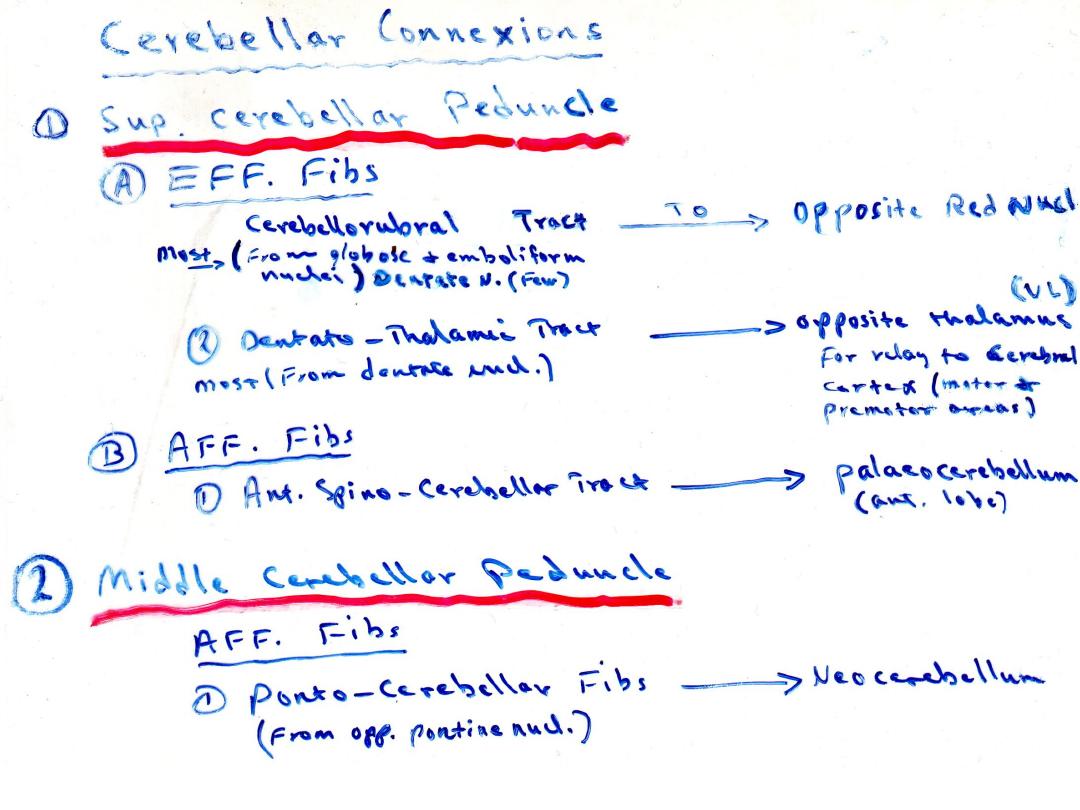 Cerebellar Connexions
① Sup. cerebellar Peduncle
Ⓐ EFF. Fibs
Cerebellorubral Tract TO → Opposite Red Nucl
Most (From globose & emboliform
nuclei) Dentate N. (Few)
(VL)
② Dentato-Thalamic Tract → opposite thalamus
most (From dentate nucl.) For relay to Cerebral
Cortex (motor &
premotor areas)
Ⓑ AFF. Fibs
① Ant. Spino-Cerebellar Tract → palaeocerebellum
(ant. lobe)
② Middle Cerebellar Peduncle
AFF. Fibs
① Ponto-Cerebellar Fibs → Neocerebellum
(From opp. pontine nucl.)